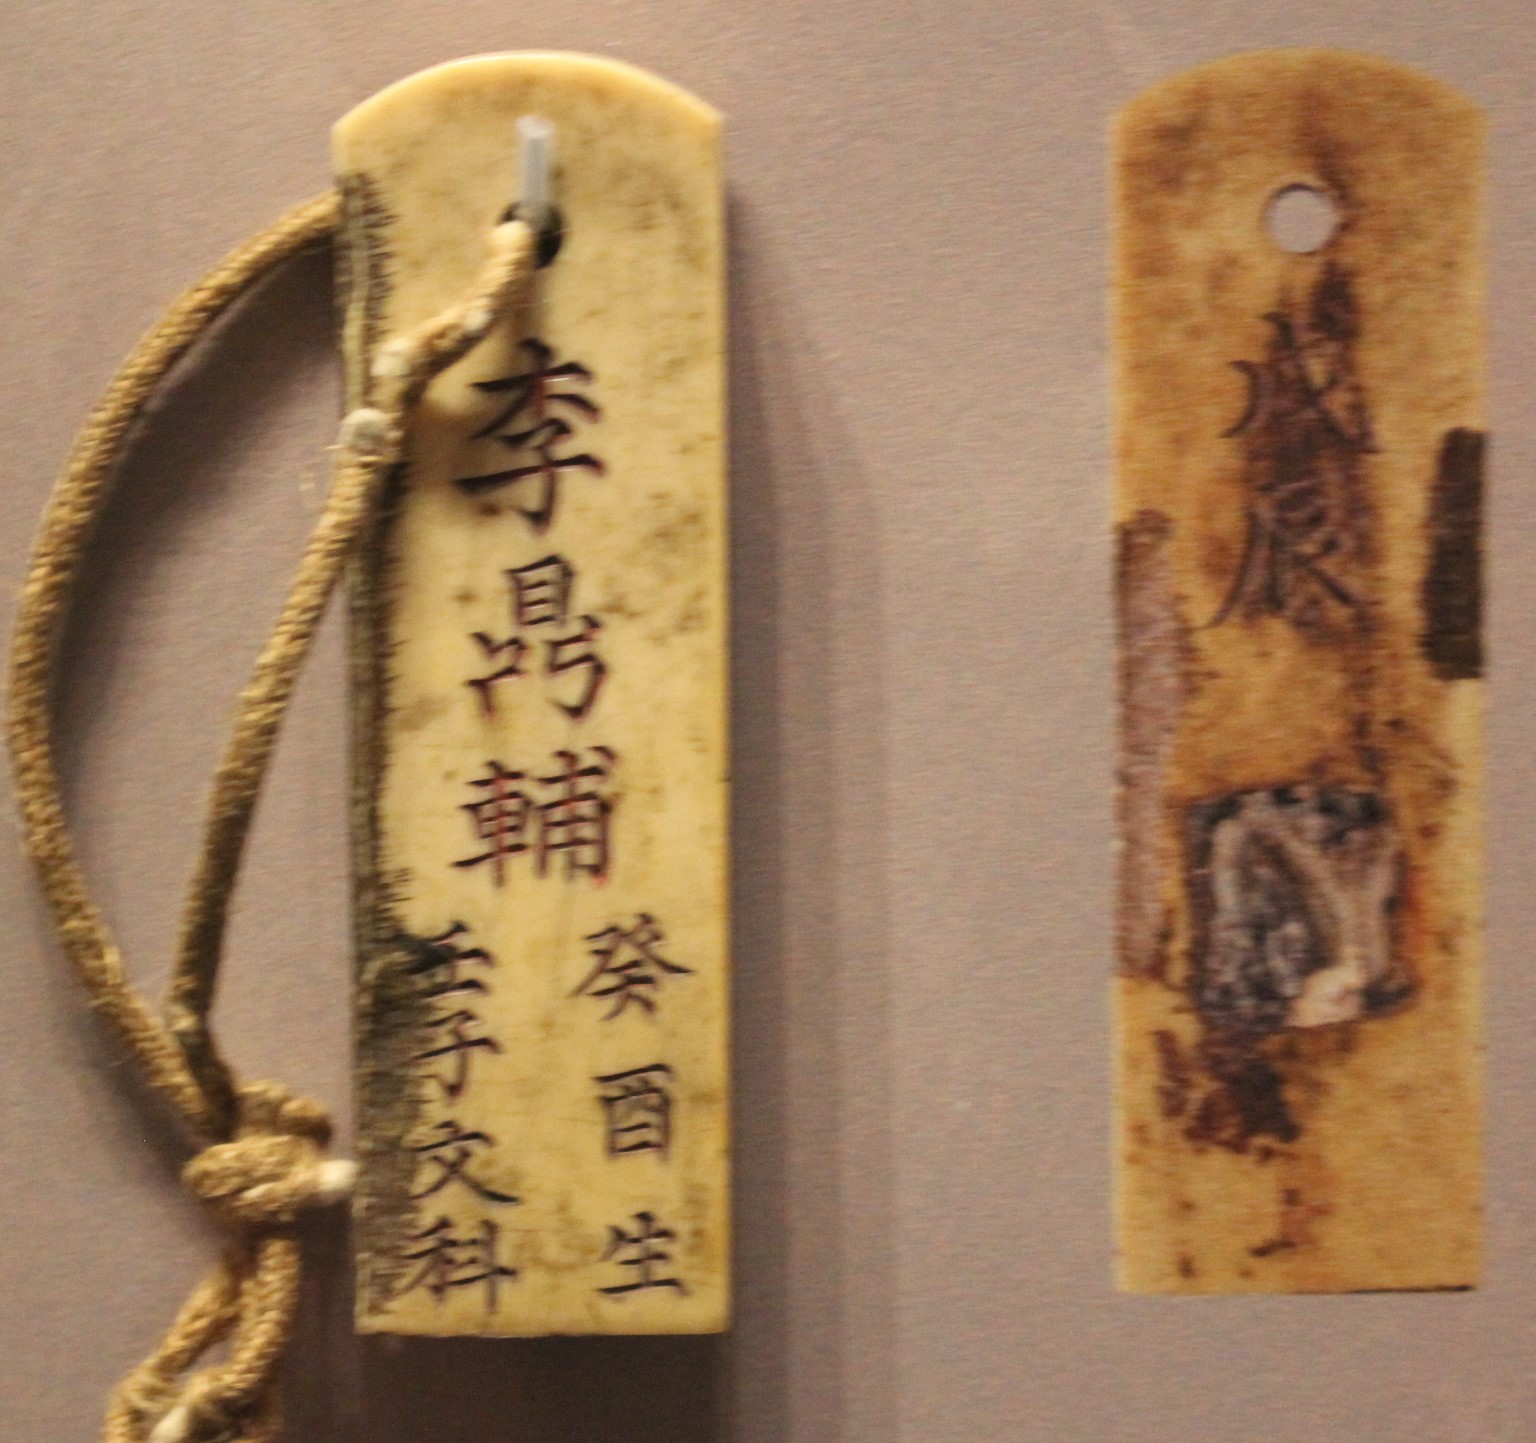 李鼎輔
癸酉生
壬子文科
戊辰